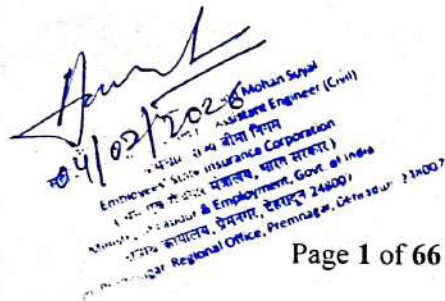 04/02/2026
Mohan Suyal
Assistant Engineer (Civil)
राज्य बीमा निगम
Employees' State Insurance Corporation
मंत्रालय, भारत सरकार)
Labour & Employment, Govt. of India
कार्यालय, प्रेमनगर, देहरादून 248007
Regional Office, Premnagar, Dehradun
Page 1 of 66